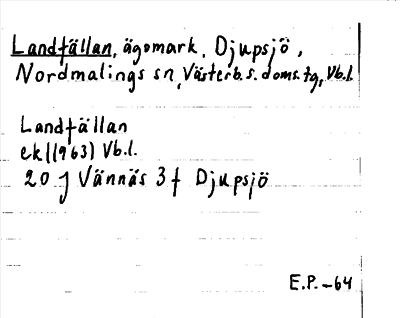 Landfällan, ägomark, Djupsjö,
Nordmalings sn, Västerb. s. doms. tg, Vb.l.
Landfällan
ek (1963) Vb.l.
20 J Vännäs 3 f Djupsjö
E.P. -64